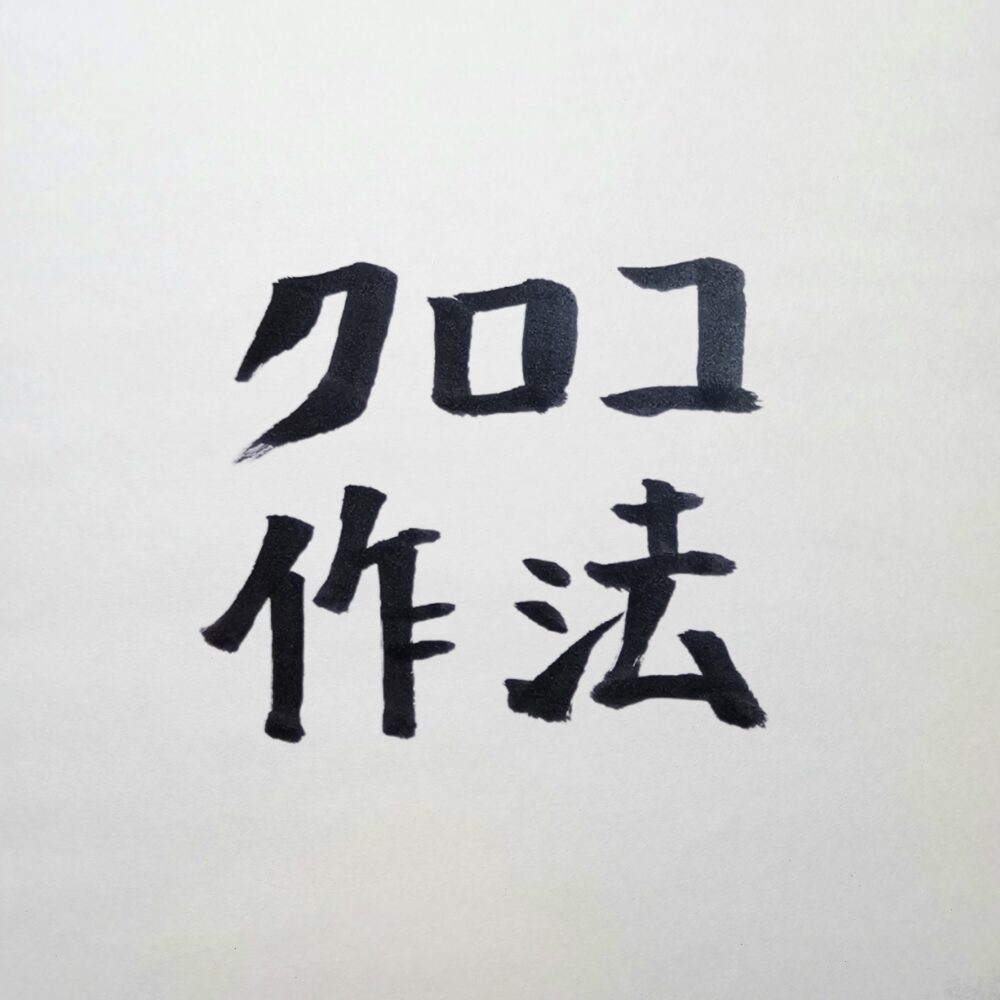 クロコ
作法